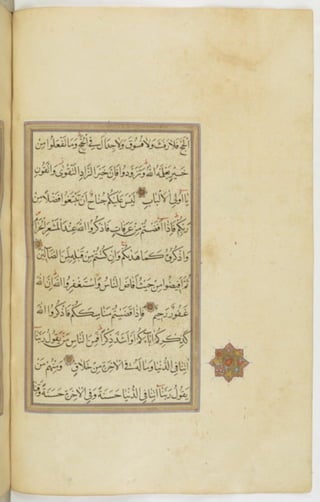 ٱلْحَجَّ فَلَا رَفَثَ وَلَا فُسُوقَ وَلَا جِدَالَ فِي ٱلْحَجِّ وَمَا تَفْعَلُوا مِنْ
خَيْرٍ يَعْلَمْهُ ٱللَّهُ وَتَزَوَّدُوا فَإِنَّ خَيْرَ ٱلزَّادِ ٱلتَّقْوَىٰ وَٱتَّقُونِ
يَا أُولِي ٱلْأَلْبَابِ لَيْسَ عَلَيْكُمْ جُنَاحٌ أَنْ تَبْتَغُوا فَضْلًا مِنْ
رَبِّكُمْ فَإِذَا أَفَضْتُمْ مِنْ عَرَفَاتٍ فَاذْكُرُوا ٱللَّهَ عِنْدَ ٱلْمَشْعَرِ ٱلْحَرَامِ
وَاذْكُرُوهُ كَمَا هَدَاكُمْ وَإِنْ كُنْتُمْ مِنْ قَبْلِهِ لَمِنَ ٱلضَّالِّينَ
ثُمَّ أَفِيضُوا مِنْ حَيْثُ أَفَاضَ ٱلنَّاسُ وَٱسْتَغْفِرُوا ٱللَّهَ إِنَّ ٱللَّهَ
غَفُورٌ رَحِيمٌ فَإِذَا قَضَيْتُمْ مَنَاسِكَكُمْ فَاذْكُرُوا ٱللَّهَ
كَذِكْرِكُمْ آبَاءَكُمْ أَوْ أَشَدَّ ذِكْرًا فَمِنَ ٱلنَّاسِ مَنْ يَقُولُ رَبَّنَا
آتِنَا فِي ٱلدُّنْيَا وَمَا لَهُ فِي ٱلْآخِرَةِ مِنْ خَلَاقٍ وَمِنْهُمْ مَنْ
يَقُولُ رَبَّنَا آتِنَا فِي ٱلدُّنْيَا حَسَنَةً وَفِي ٱلْآخِرَةِ حَسَنَةً وَقِنَا